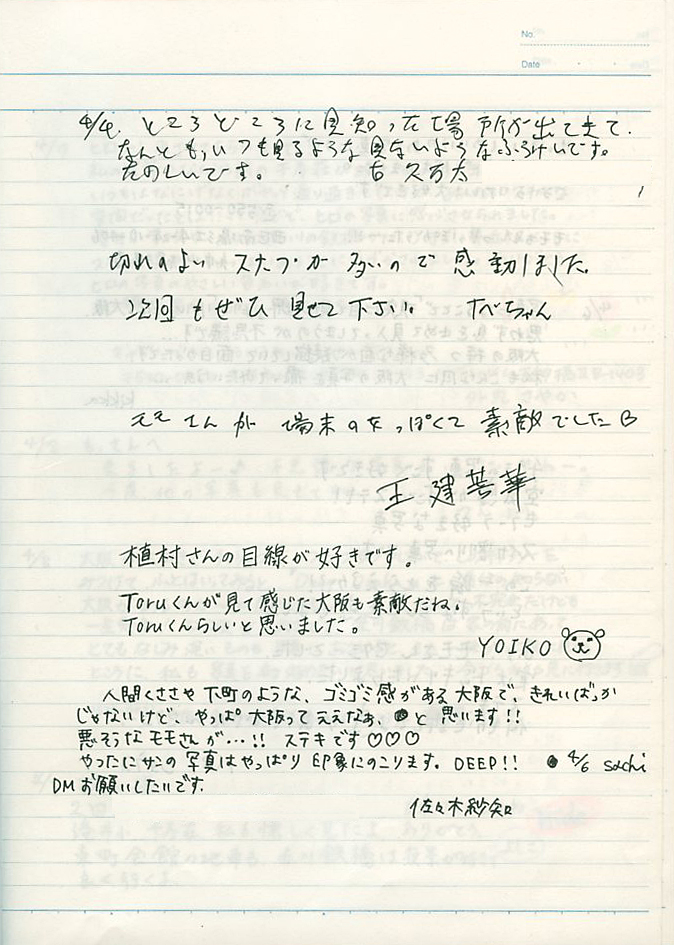 No.
Date
4/4. ところどころに見知った場所が出て来て、
なんとも、いつも見るような見ないようなふうけいです。
たのしいです。
切れのよい スナップが 多いので 感動しました。
次回もぜひ 見せて下さい。 ナベちゃん
さんが 場末の女っぽくて 素敵でした
王 建 華
植村さんの目線が好きです。
Toruくんが見て感じた大阪も素敵だね。
Toruくんらしいと思いました。
YOIKO
人間くささや下町のような、ゴミゴミ感がある大阪で、きれいばっか
じゃないけど、やっぱ大阪ってええなぁ、と思います!!
悪そうなモモさんが…!! ステキです♡♡♡
やったにサンの写真はやっぱり印象にのこります。DEEP!! 4/6 sachi
DMお願いしたいです。
佐々木紗知